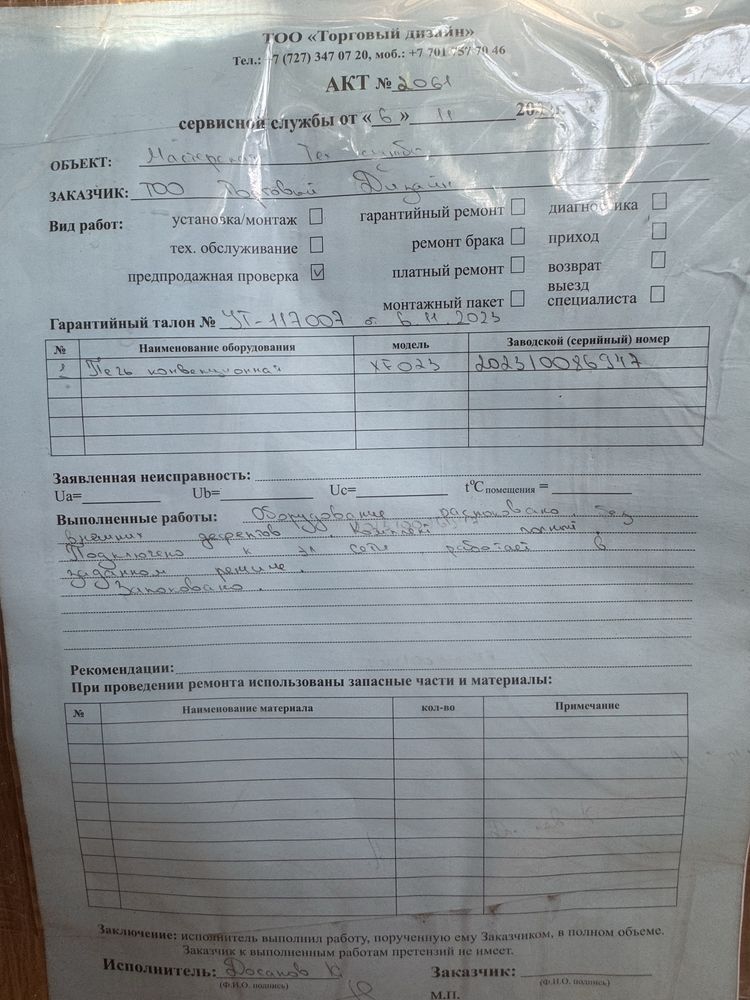 ТОО «Торговый дизайн»
Тел.: +7 (727) 347 07 20, моб.: +7 701 757 70 46
АКТ № 2061
сервисной службы от « 6 » 11 202
ОБЪЕКТ: Мастерская Тех службы
ЗАКАЗЧИК: ТОО Торговый Дизайн
Вид работ: установка/монтаж ☐ гарантийный ремонт ☐ диагностика ☐
тех. обслуживание ☐ ремонт брака ☐ приход ☐
предпродажная проверка ☑ платный ремонт ☐ возврат ☐
монтажный пакет ☐ выезд специалиста ☐
Гарантийный талон № УТ-117007 от 6.11.2023
№ Наименование оборудования модель Заводской (серийный) номер
Печь конвекционная XF023 202310086947
Заявленная неисправность:
Ua= Ub= Uc= t°C помещения =
Выполненные работы: Оборудование распаковано, без
внешних дефектов. Комплект полный.
Подключено к эл сети работает в
заданном режиме.
Запаковано.
Рекомендации:
При проведении ремонта использованы запасные части и материалы:
№ Наименование материала кол-во Примечание
Заключение: исполнитель выполнил работу, порученную ему Заказчиком, в полном объеме.
Заказчик к выполненным работам претензий не имеет.
Исполнитель: Досанов К Заказчик:
(Ф.И.О. подпись) (Ф.И.О. подпись)
М.П.